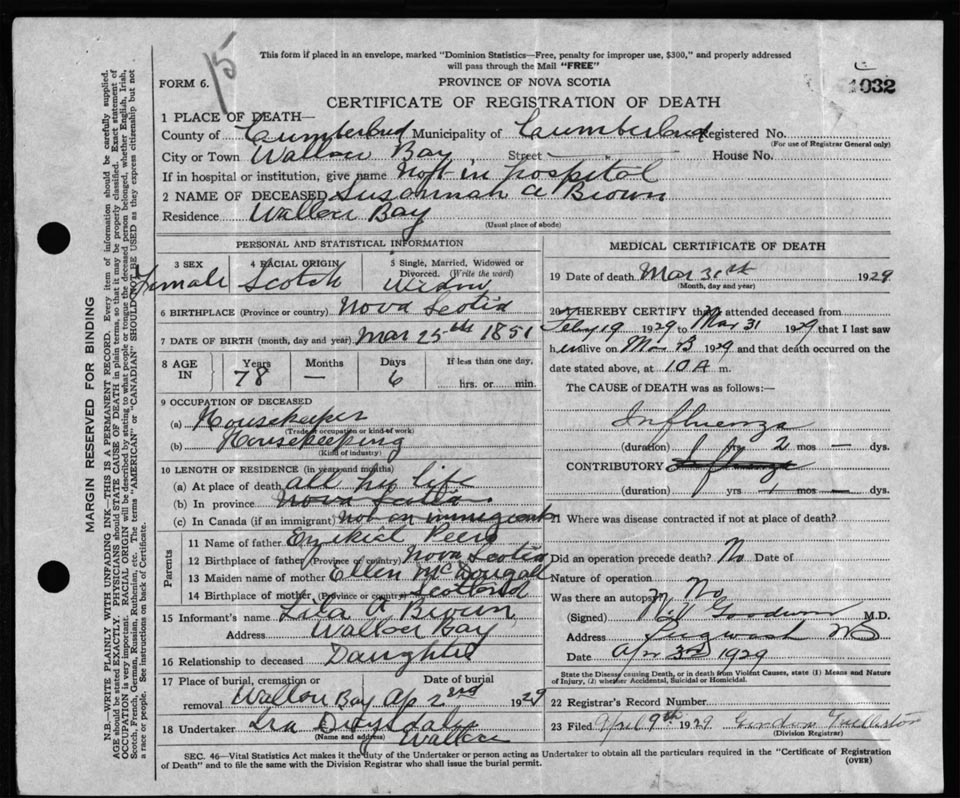 15
This form if placed in an envelope, marked "Dominion Statistics—Free, penalty for improper use, $300," and properly addressed
will pass through the Mail "FREE"
FORM 6.
PROVINCE OF NOVA SCOTIA
1032
CERTIFICATE OF REGISTRATION OF DEATH
1 PLACE OF DEATH—
County of Cumberland Municipality of Cumberland Registered No.
(For use of Registrar General only)
City or Town Wallace Bay Street House No.
If in hospital or institution, give name Not in hospital
2 NAME OF DECEASED Susannah A Brown
Residence Wallace Bay
(Usual place of abode)
PERSONAL AND STATISTICAL INFORMATION
3 SEX 4 RACIAL ORIGIN 5 Single, Married, Widowed or
Divorced. (Write the word)
Female Scotch Widow
6 BIRTHPLACE (Province or country) Nova Scotia
7 DATE OF BIRTH (month, day and year) Mar 25th 1851
8 AGE IN Years Months Days If less than one day,
78 — 6 hrs. or min.
9 OCCUPATION OF DECEASED
(a) Housekeeper
(Trade, occupation or kind of work)
(b) Housekeeping
(Kind of industry)
10 LENGTH OF RESIDENCE (in years and months)
(a) At place of death all her life
(b) In province Nova Scotia
(c) In Canada (if an immigrant) Not an immigrant
Parents
11 Name of father Ezikiel Peers
12 Birthplace of father (Province or country) Nova Scotia
13 Maiden name of mother Ellen McDougall
14 Birthplace of mother (Province or country) Scotland
15 Informant's name Lila A Brown
Address Wallace Bay
16 Relationship to deceased Daughter
17 Place of burial, cremation or removal Date of burial
Wallace Bay Ap 2nd 1929
18 Undertaker Ira Drysdale
(Name and address)
Wallace
MEDICAL CERTIFICATE OF DEATH
19 Date of death Mar 31st 1929
(Month, day and year)
20 I HEREBY CERTIFY that I attended deceased from
Feby 19 1929 to Mar 31 1929 that I last saw
her alive on Mar 1929 and that death occurred on the
date stated above, at 10 A m.
The CAUSE of DEATH was as follows:—
Influenza
(duration) yrs 2 mos — dys.
CONTRIBUTORY Influenza
(duration) yrs 1 mos — dys.
21 Where was disease contracted if not at place of death?
Did an operation precede death? No Date of
Nature of operation
Was there an autopsy? No
(Signed) Goodwin M.D.
Address Pugwash NS
Date Apr 3rd 1929
State the Disease causing Death, or in death from Violent Causes, state (1) Means and Nature
of Injury, (2) whether Accidental, Suicidal or Homicidal.
22 Registrar's Record Number
23 Filed April 9th 1929 Gordon
(Division Registrar)
SEC. 46—Vital Statistics Act makes it the duty of the Undertaker or person acting as Undertaker to obtain all the particulars required in the "Certificate of Registration
of Death" and to file the same with the Division Registrar who shall issue the burial permit.
(OVER)
MARGIN RESERVED FOR BINDING
N.B.—WRITE PLAINLY WITH UNFADING INK—THIS IS A PERMANENT RECORD. Every item of information should be carefully supplied.
AGE should be stated EXACTLY. PHYSICIANS should STATE CAUSE OF DEATH in plain terms, so that it may be properly classified. Exact statement of
OCCUPATION is very important. RACIAL ORIGIN will be described by stating to what people or tongue the deceased person belonged, whether English, Irish,
Scotch, French, German, Russian, Ruthenian, etc. The terms "AMERICAN" or "CANADIAN" SHOULD NOT BE USED as they express citizenship but not
a race or people. See instructions on back of Certificate.